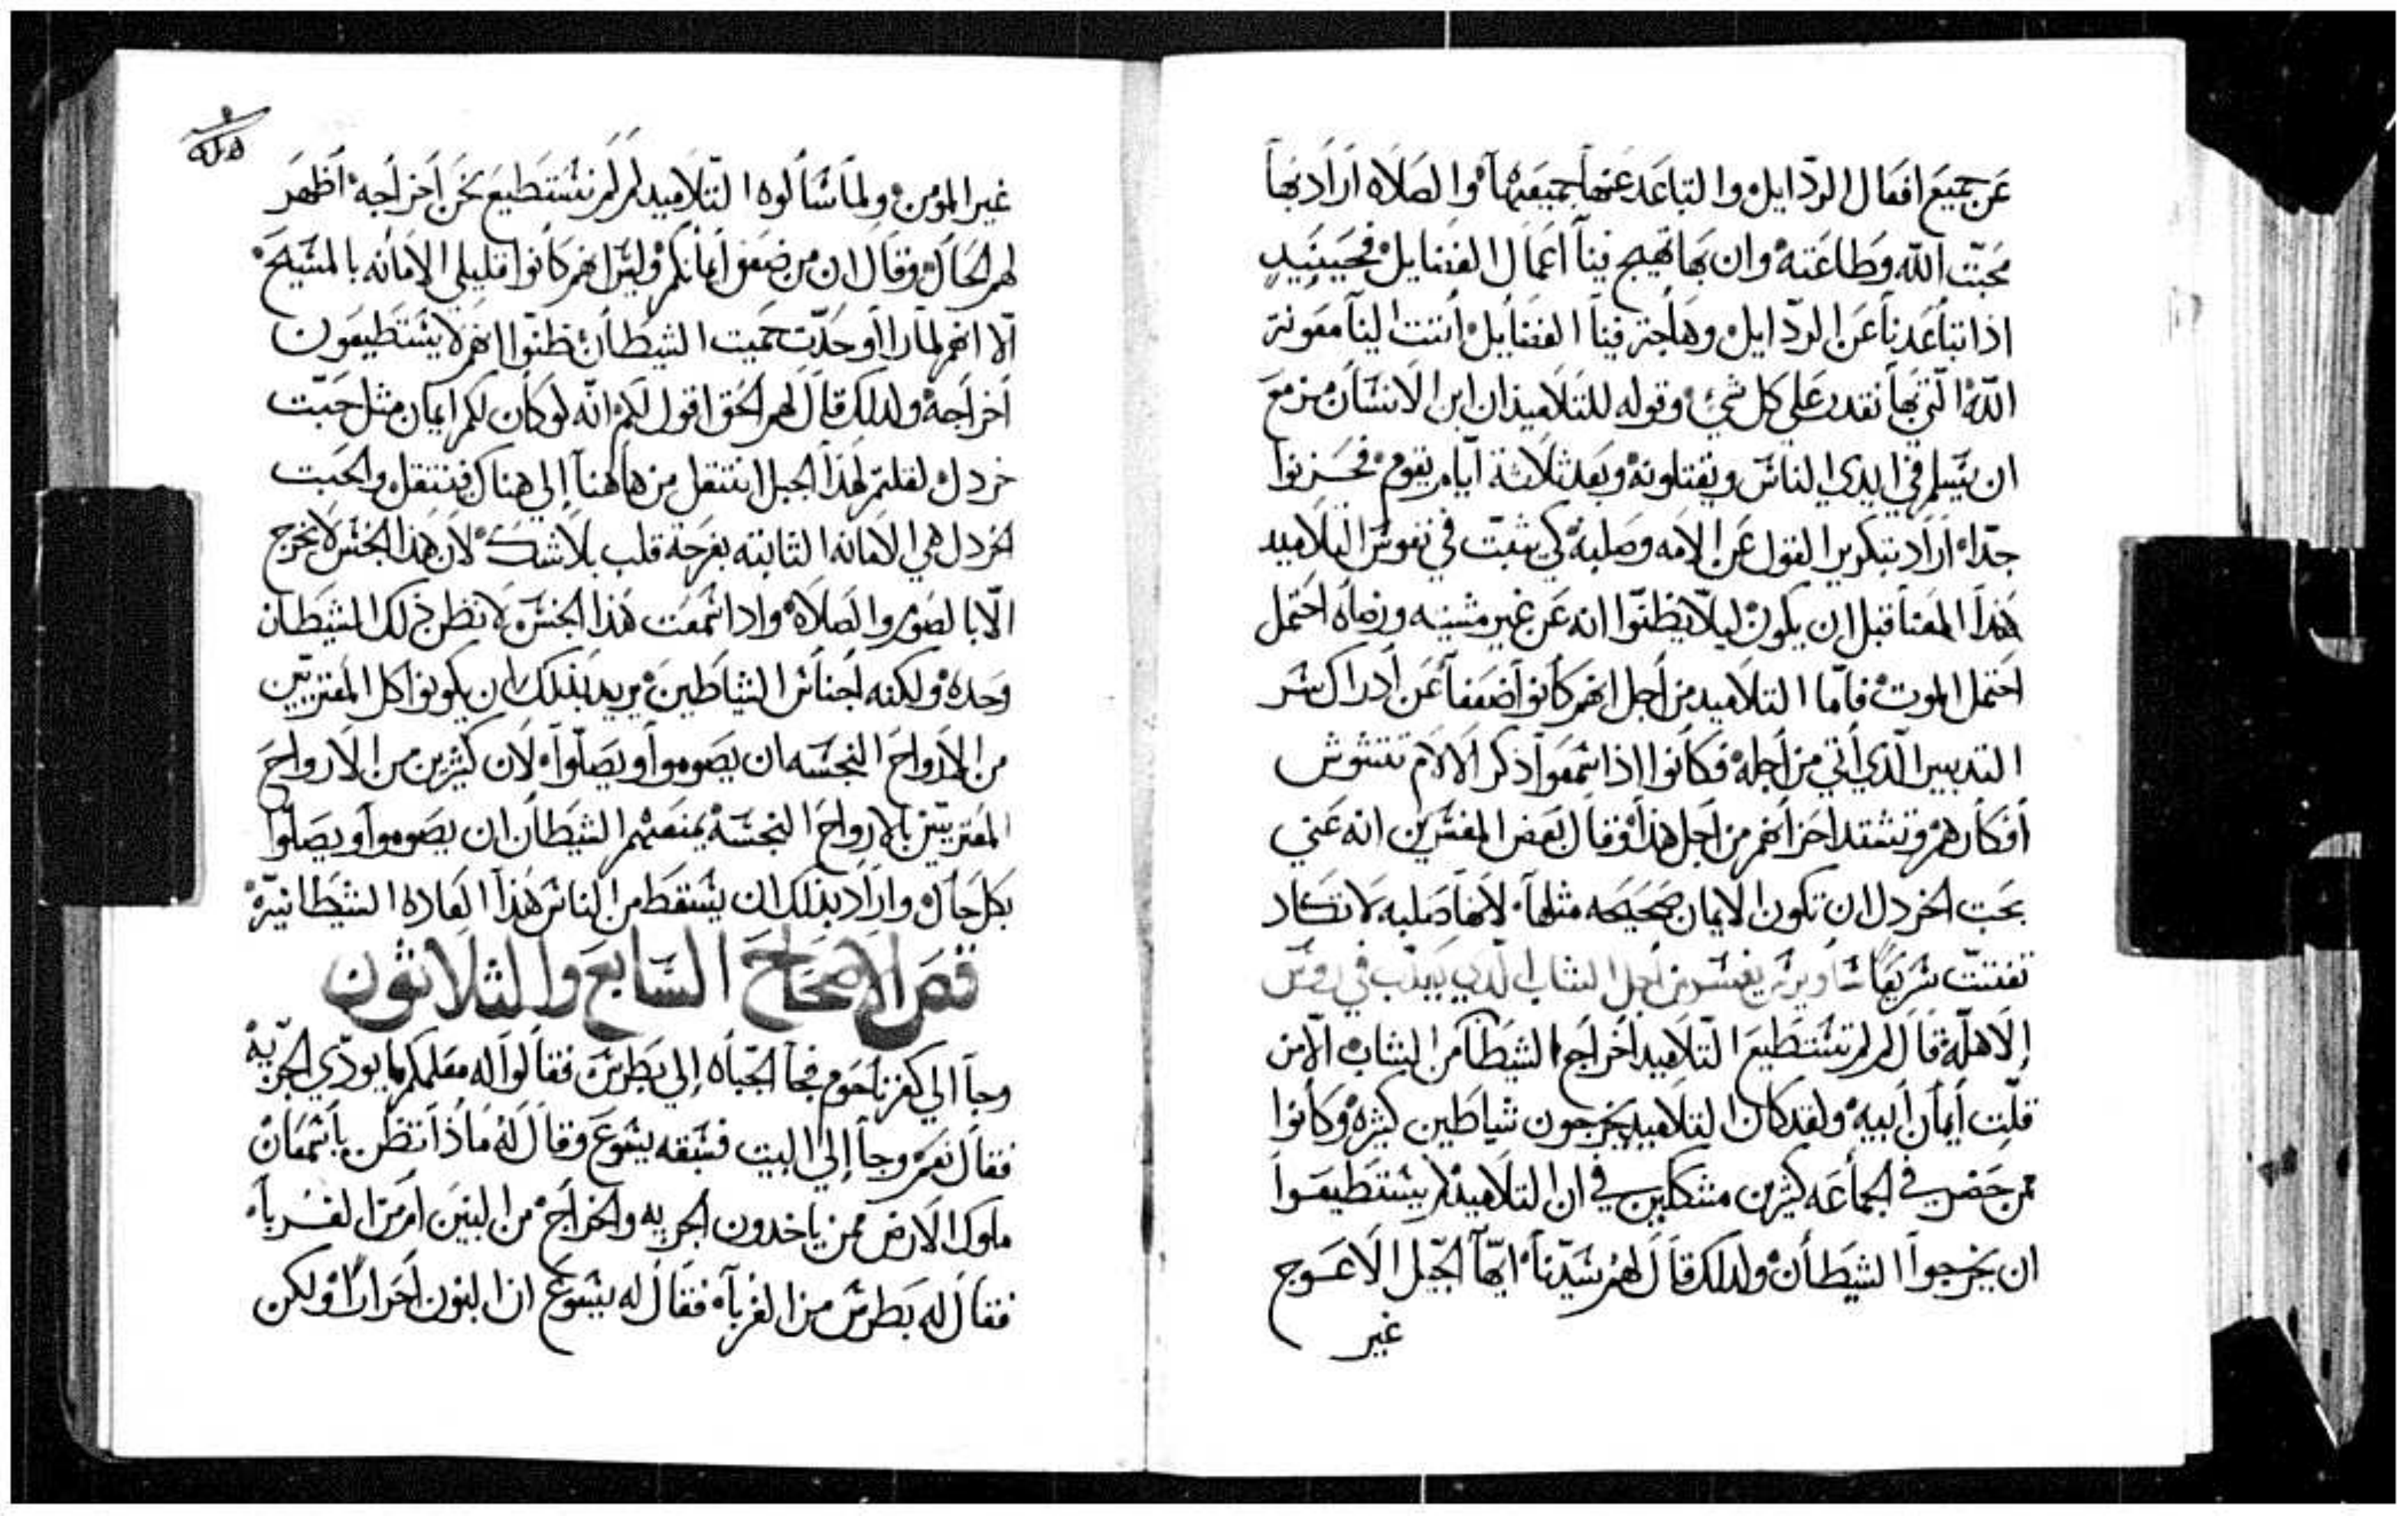 عن جميع افعال الردايل والتباعد عنها جميعها والصلاه اراد بها
محبت الله وطاعته وان بها تهيج فينا اعمال الفضايل فحينيد
اذا تباعدنا عن الردايل وهاجت فينا الفضايل أتت الينا معونة
الله التي بها نقدر على كل شي وقوله للتلاميذ ان ابن الانسان مزمع
ان يسلم في ايدي الناس ويقتلونه وبعد ثلاثة ايام يقوم فحزنوا
جدا اراد بتكرير القول عن الامه وصلبه كي يثبت في نفوس التلاميد
هدا المعنا قبل ان يكون ليلا يظنوا انه عن غير مشيه ورضاه احتمل
احتمل الموت فاما التلاميد من اجل انهم كانوا ضعفا عن ادراك سر
التدبير الدي أتي من اجله فكانوا اذا سمعوا ذكر الالام تتشوش
أفكارهم وتشتد احزانهم من اجل هذا وقال بعض المفسرين انه عني
بحبت الخردل ان تكون الايمان صحيحه مثلها لانها صلبه لا تكاد
تفتت سريعا من اجل الشاب الدي يعدب في روس
الاهله قال لم لم تستطيع التلاميد اخراج الشيطان من الشاب الا من
قلت أيمان ابيه ولقد كان التلاميد يخرجون شياطين كثيره وكانوا
ممن حضر في الجماعه كثيرين متشككين في ان التلاميد لم يستطيعوا
ان يخرجوا الشيطان ولدلك قال لهم سيدنا ايها الجيل الاعوج
غير
غير المومن ولما سالوه التلاميد لم لم نستطيع نحن اخراجه اظهر
لهم الحال وقال ان من ضعف أيمانكم وليس انهم كانوا قليلي الامانه بالمسيح
الا انهم لما راوا حدت حميت الشيطان ظنوا انهم لا يستطيعون
اخراجه ولدلك قال لهم الحق اقول لكم انه لو كان لكم ايمان مثل حبت
خردل لقلتم لهذا الجبل انتقل من هاهنا إلى هناك فينتقل والحبت
الخردل هي الامانه الثابته بفرحة قلب بلا شك لان هذا الجنس لا يخرج
الا بالصوم والصلاه وادا سمعت هذا الجنس لا تظن ذلك الشيطان
وحده ولكنه اجناس الشياطين يريد بذلك ان يكونوا كل المعتريين
من الارواح النجسه ان يصوموا ويصلوا لان كثيرين من الارواح
المعتريين بالارواح النجسه يمنعهم الشيطان ان يصوموا ويصلوا
بكل حال واراد بذلك ان يسقط من الناس هذا العاده الشيطانيه
فص الاصحاح السابع والثلاثون
وجا الي كفرناحوم فجا الجباه إلى بطرس فقالوا له معلمكم ما يودي الجزيه
فقال نعم وجا إلي البيت فسبقه يسوع وقال له ماذا تظن يا سمعان
ملوك الارض ممن ياخدون الجزيه والخراج من البنين ام من الغربا
فقال له بطرس من الغربا فقال له يسوع ان البنون احرار ولكن